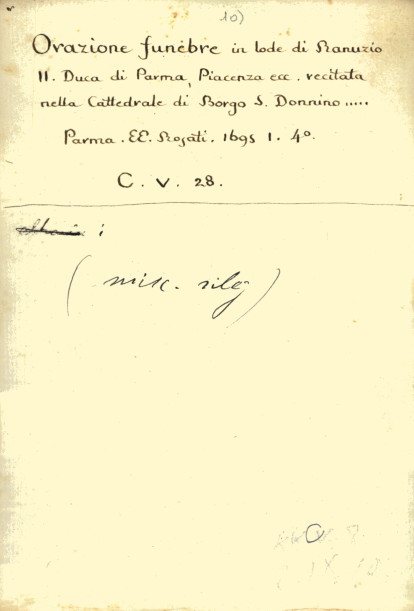 10)
Orazione funèbre in lode di Ranuzio
II. Duca di Parma, Piacenza ecc. recitata
nella Cattedrale di Borgo S. Donnino.....
Parma. EE. Rosati. 1695 1. 4º.
C. V. 28.
(misc. rileg)
C